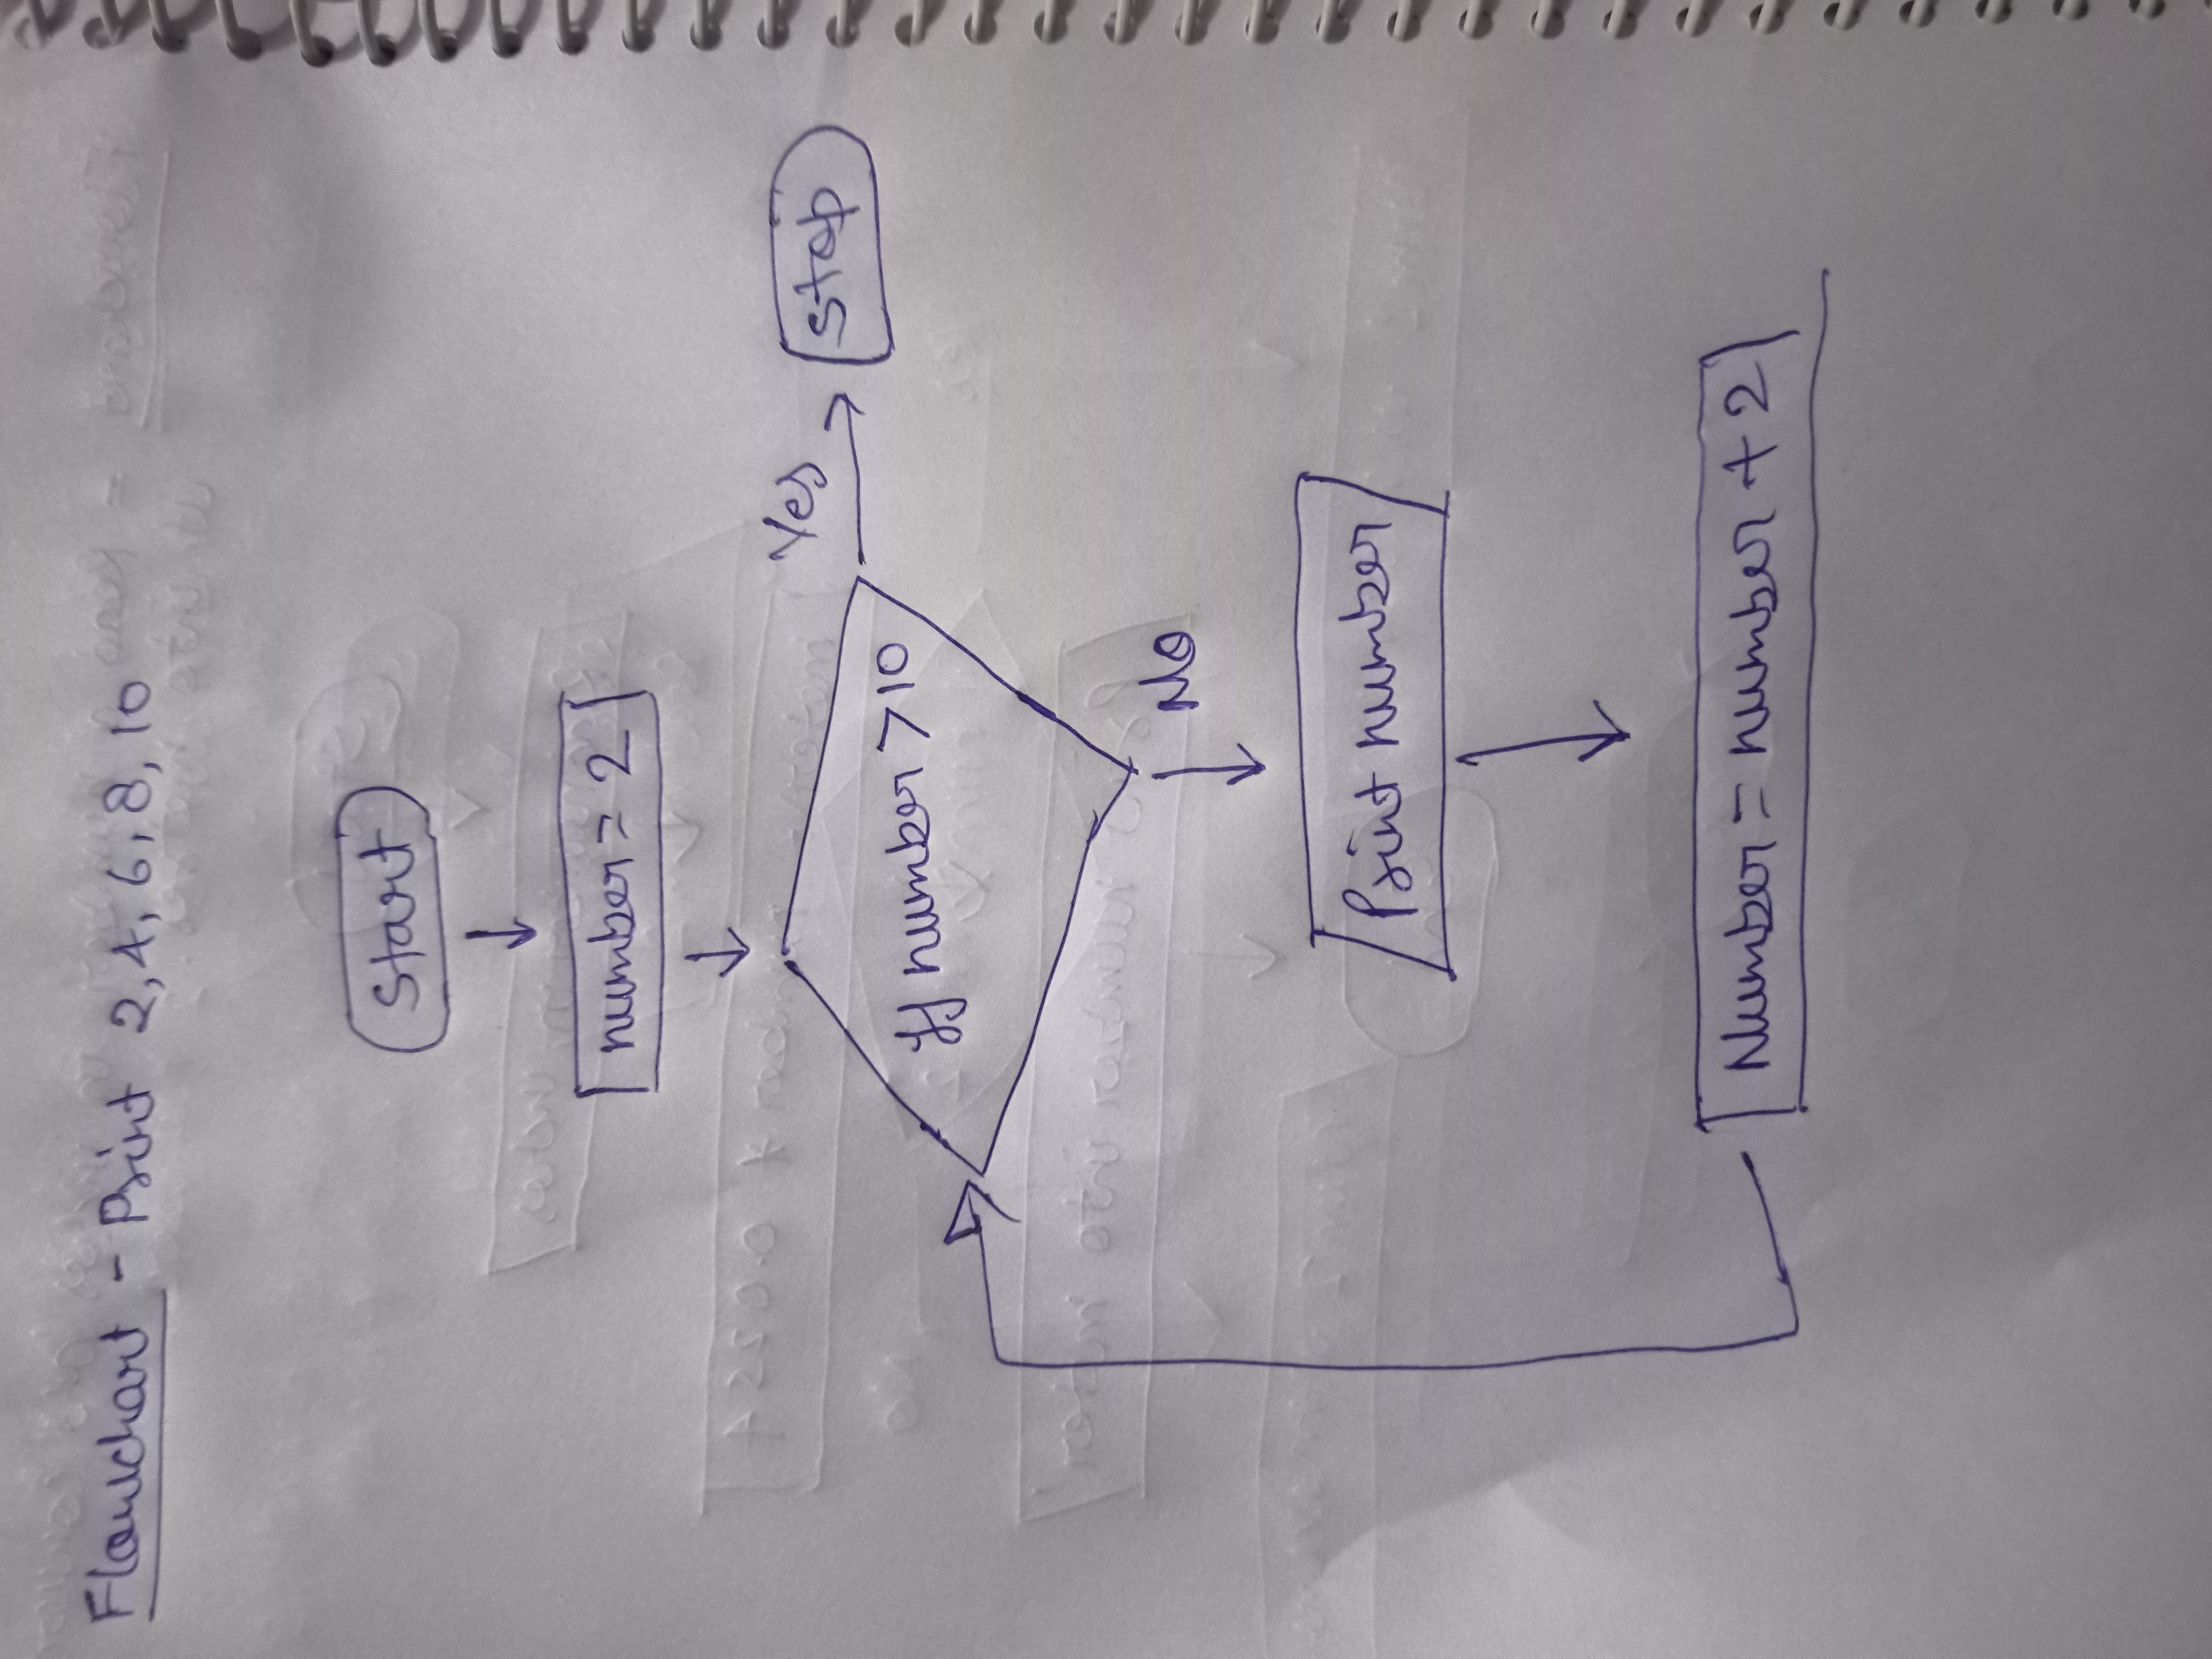 Flowchart - Print 2, 4, 6, 8, 10
Start
number = 2
If number > 10
Yes
Stop
No
Print number
Number = number + 2